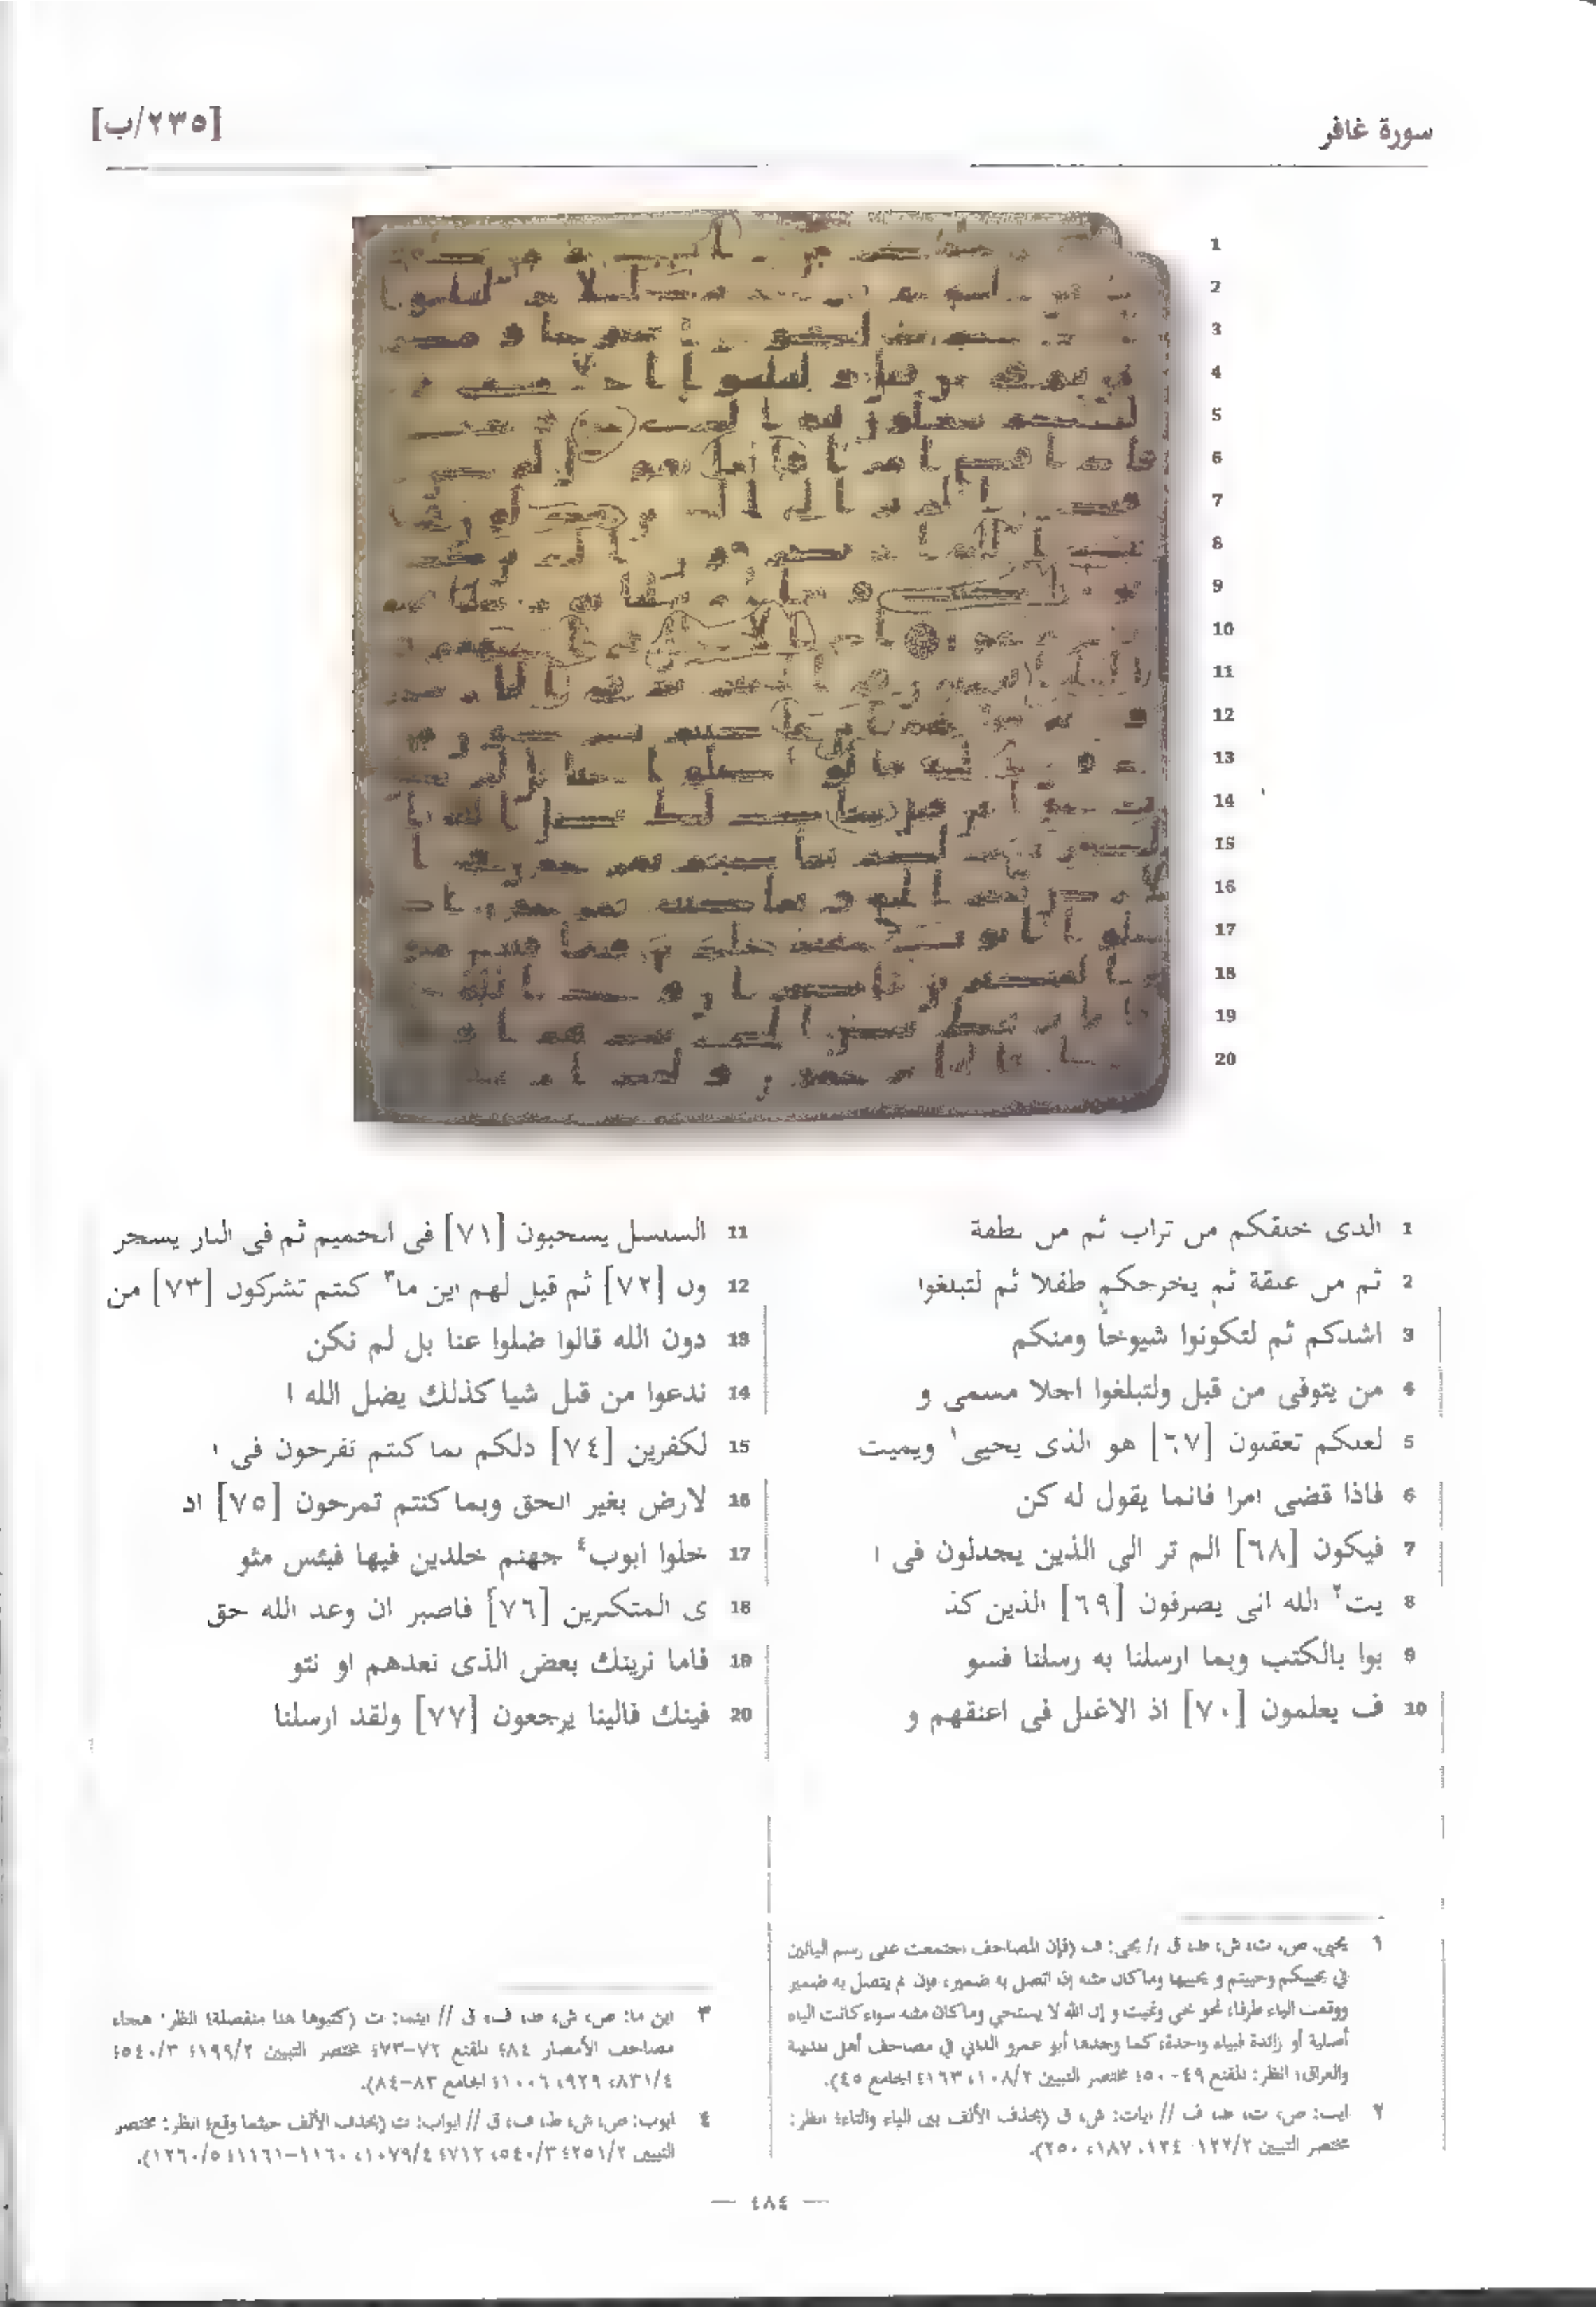 سورة غافر
[٢٣٥/ب]
1
2
3
4
5
6
7
8
9
10
11
12
13
14
15
16
17
18
19
20
1 الذى خلقكم من تراب ثم من نطفة
2 ثم من علقة ثم يخرجكم طفلا ثم لتبلغوا
3 اشدكم ثم لتكونوا شيوخا ومنكم
4 من يتوفى من قبل ولتبلغوا اجلا مسمى و
5 لعلكم تعقلون [٦٧] هو الذى يحيى١ ويميت
6 فاذا قضى امرا فانما يقول له كن
7 فيكون [٦٨] الم تر الى الذين يجدلون فى ا
8 يت٢ الله انى يصرفون [٦٩] الذين كذ
9 بوا بالكتب وبما ارسلنا به رسلنا فسو
10 ف يعلمون [٧٠] اذ الاغلل فى اعنقهم و
11 السلسل يسحبون [٧١] فى الحميم ثم فى النار يسجر
12 ون [٧٢] ثم قيل لهم اين ما٣ كنتم تشركون [٧٣] من
13 دون الله قالوا ضلوا عنا بل لم نكن
14 ندعوا من قبل شيا كذلك يضل الله ا
15 لكفرين [٧٤] ذلكم بما كنتم تفرحون فى ا
16 لارض بغير الحق وبما كنتم تمرحون [٧٥] اد
17 خلوا ابوب٤ جهنم خلدين فيها فبئس مثو
18 ى المتكبرين [٧٦] فاصبر ان وعد الله حق
19 فاما نرينك بعض الذى نعدهم او نتو
20 فينك فالينا يرجعون [٧٧] ولقد ارسلنا
١ يحيى: ص، ت، ش، ط، ق // يحى: ف (فإن المصاحف اجتمعت على رسم اليائين
في يحييكم وحييتم و يحييها وما كان مثله إذا اتصل به ضمير، فإن لم يتصل به ضمير
ووقعت الياء طرفا، نحو نحي ونميت و إن الله لا يستحي وما كان مثله سواء كانت الياء
أصلية أو زائدة فبياء واحدة، كما وجدها أبو عمرو الداني في مصاحف أهل المدينة
والعراق؛ انظر: المقنع ٤٩-٥٠؛ مختصر التبيين ١٠٨/٢، ١٦٣؛ الجامع ٤٥).
٢ ايت: ص، ت، ط، ف // ايات: ش، ق (بحذف الألف بين الياء والتاء؛ انظر:
مختصر التبيين ١٢٢/٢-١٢٤، ١٨٧، ٢٥٠).
٣ اين ما: ص، ش، ط، ف، ق // اينما: ت (كتبوها هنا منفصلة؛ انظر: هجاء
مصاحف الأمصار ٨٤؛ المقنع ٧٢-٧٣؛ مختصر التبيين ١٩٩/٢؛ ٥٤٠/٣؛
٨٣١/٤، ٩٢٩، ١٠٠٦؛ الجامع ٨٣-٨٤).
٤ ابوب: ص، ش، ط، ف، ق // ابواب: ت (بحذف الألف حيثما وقع؛ انظر: مختصر
التبيين ٢٥١/٢؛ ٥٤٠/٣، ٧١٢؛ ١٠٧٩/٤، ١١٦٠-١١٦١؛ ١٢٦٠/٥).
— ٤٨٤ —